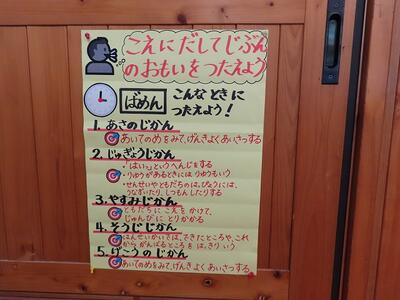 こえにだしてじぶん
のおもいをつたえよう
ばめん こんなときに
つたえよう！
1. あさのじかん
あいてのめをみて、げんきよくあいさつする
2. じゅぎょうじかん
・「はい」というへんじをする
・りゆうがあるときには りゆうもいう
・せんせいやともだちのはっぴょうには、
うなずいたり、しつもんしたりする
3. やすみじかん
ともだちに こえをかけて、
じゅんびに とりかかる
4. そうじじかん
はんせいかいでは、できたところや、これ
から がんばるところを はっきりいう
5. げこうのじかん
あいてのめをみて、げんきよく あいさつする